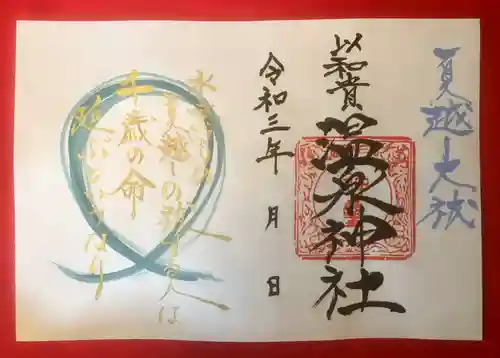 夏越大祓
以和貴
温泉神社
令和三年 月 日
水無月の
夏越しの祓する人は
千歳の命
延ぶというなり